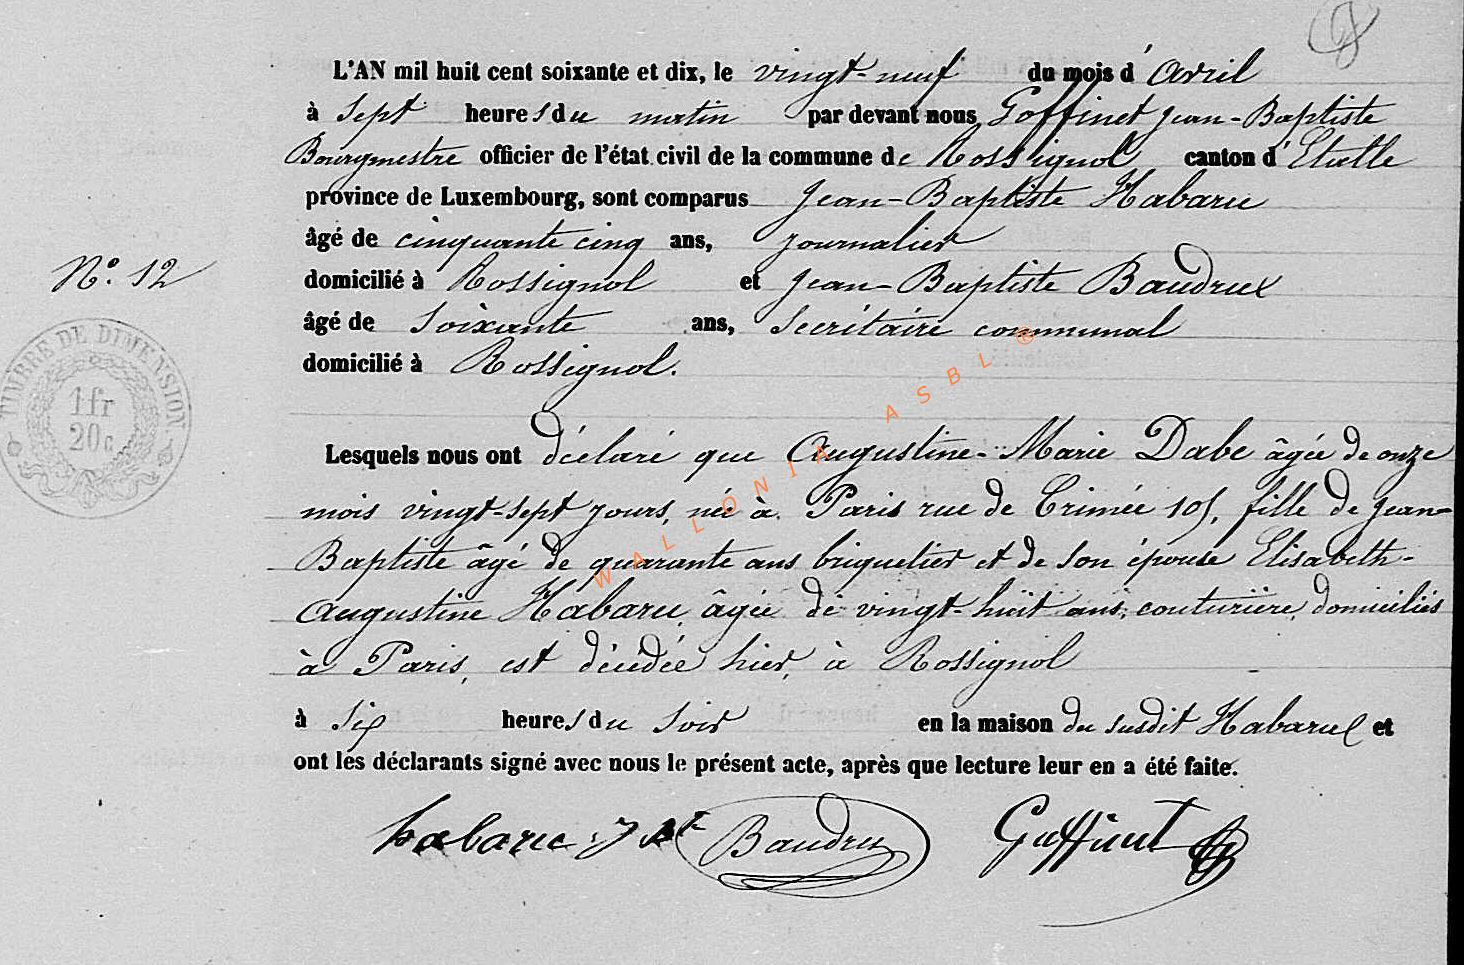 L'AN mil huit cent soixante et dix, le vingt-neuf du mois d'avril
à sept heures du matin par devant nous Goffinet Jean-Baptiste
Bourgmestre officier de l'état civil de la commune de Rossignol canton d'Etalle
province de Luxembourg, sont comparus Jean-Baptiste Habaru
âgé de cinquante cinq ans, journalier
domicilié à Rossignol et Jean-Baptiste Baudrux
N° 12
âgé de soixante ans, secrétaire communal
domicilié à Rossignol.
TIMBRE DE DIMENSION
1 fr
20 c
Lesquels nous ont déclaré que Augustine-Marie Dabe âgée de onze
mois vingt-sept jours, née à Paris rue de Crimée 105, fille de Jean-
Baptiste âgé de quarante ans briquetier et de son épouse Elisabeth-
Augustine Habaru, âgée de vingt-huit ans, couturière, domiciliés
à Paris, est décédée hier, à Rossignol
à six heures du soir en la maison du susdit Habaru et
ont les déclarants signé avec nous le présent acte, après que lecture leur en a été faite.
habaru J Bte Baudrux Goffinet
WALLONIA ASBL ®